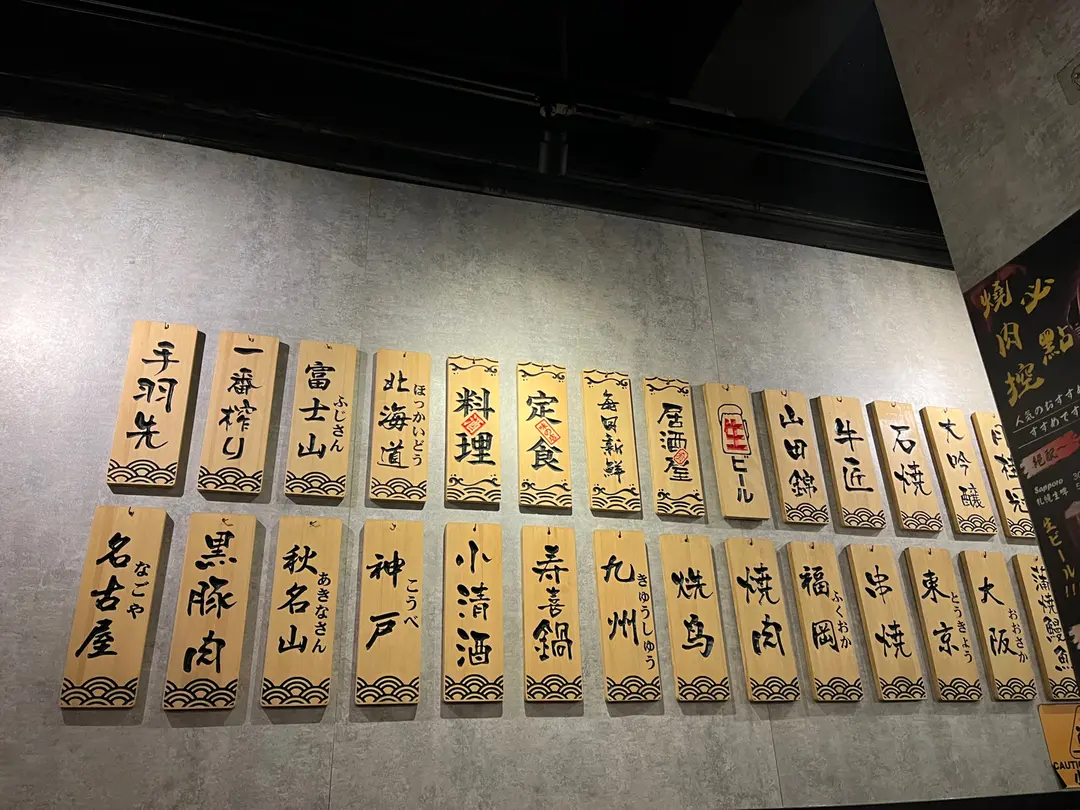 手羽先
一番榨り
富士山
ふじさん
北海道
ほっかいどう
料理
定食
毎日新鮮
居酒屋
生ビール
山田錦
牛匠
石焼
大吟醸
名古屋
なごや
黒豚肉
秋名山
あきなさん
神戸
こうべ
小清酒
寿喜鍋
九州
きゅうしゅう
焼鸟
焼肉
福岡
ふくおか
串焼
東京
とうきょう
大阪
おおさか
蒲焼鰻魚
必點
燒肉控
人気のおすす
すすめです
Sapporo
生ビール!!
CAUTIO